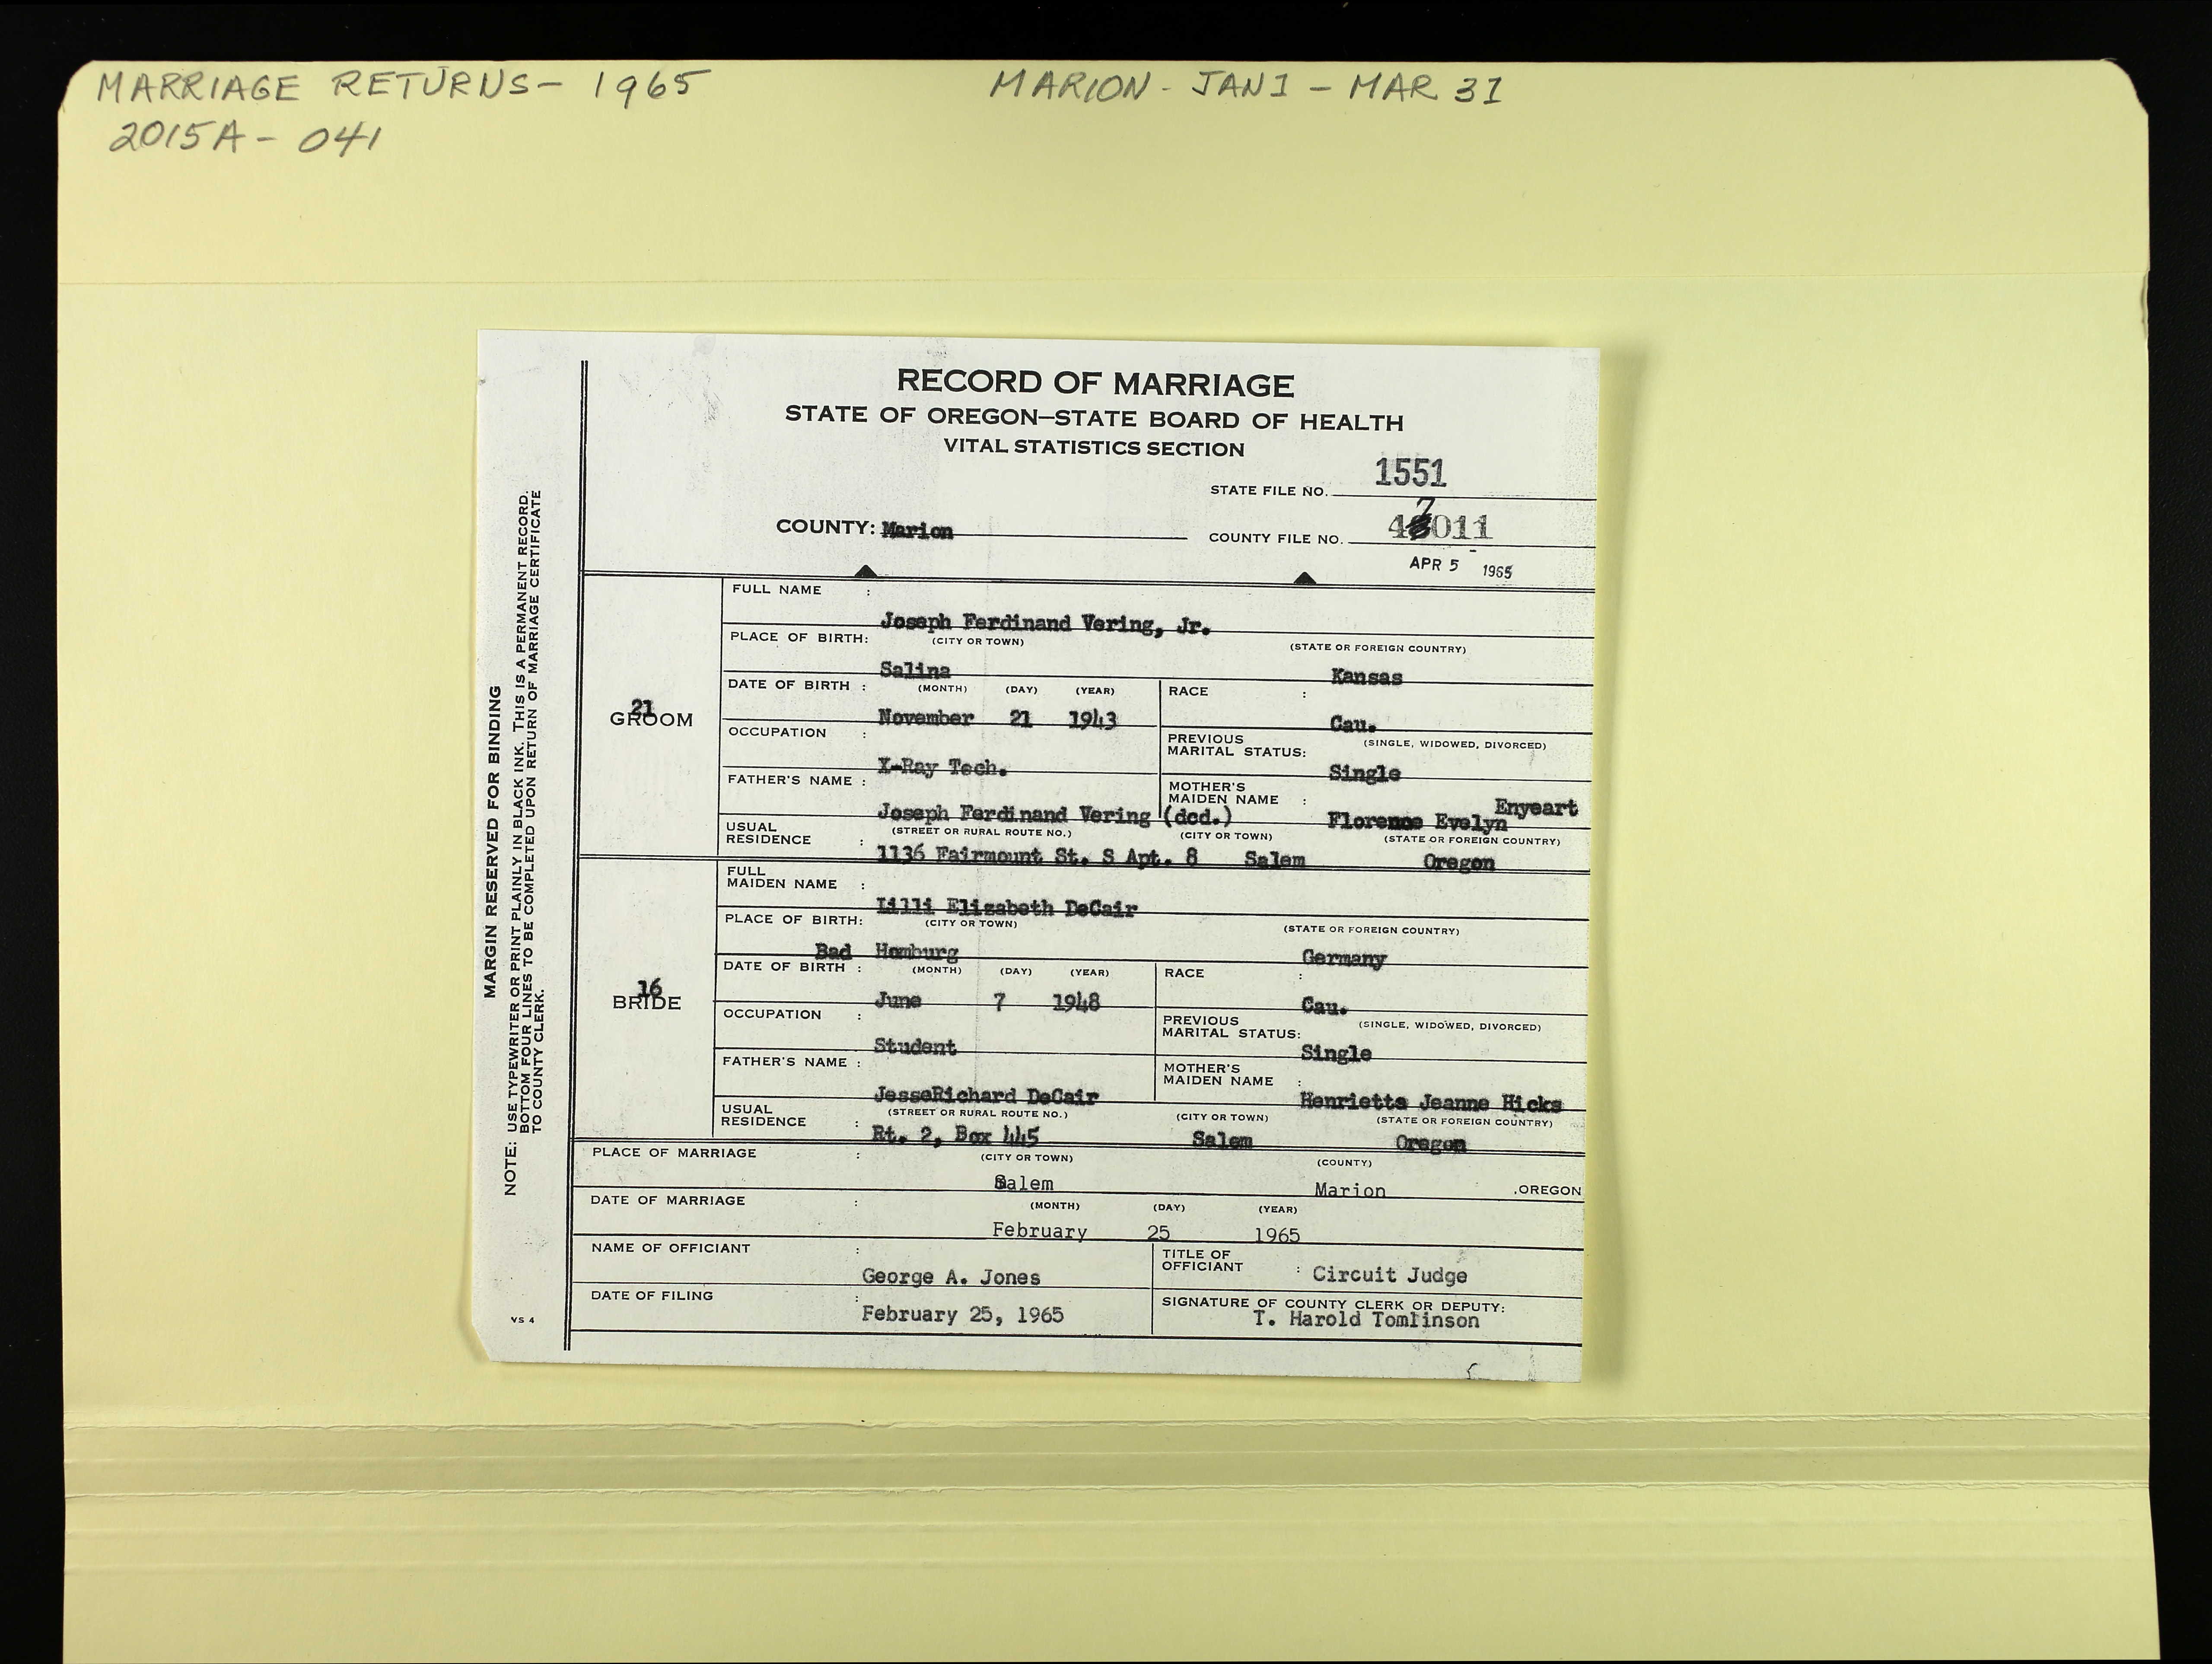 MARRIAGE RETURNS - 1965 MARION - JAN 1 - MAR 31
2015A - 041
RECORD OF MARRIAGE
STATE OF OREGON—STATE BOARD OF HEALTH
VITAL STATISTICS SECTION
STATE FILE NO. 1551
COUNTY: Marion COUNTY FILE NO. 47011
APR 5 1965
MARGIN RESERVED FOR BINDING
NOTE: USE TYPEWRITER OR PRINT PLAINLY IN BLACK INK. THIS IS A PERMANENT RECORD.
BOTTOM FOUR LINES TO BE COMPLETED UPON RETURN OF MARRIAGE CERTIFICATE
TO COUNTY CLERK.
VS 4
21
GROOM
FULL NAME :
Joseph Ferdinand Vering, Jr.
PLACE OF BIRTH: (CITY OR TOWN) (STATE OR FOREIGN COUNTRY)
Salina Kansas
DATE OF BIRTH : (MONTH) (DAY) (YEAR) RACE :
November 21 1943 Cau.
OCCUPATION : PREVIOUS
MARITAL STATUS: (SINGLE, WIDOWED, DIVORCED)
X-Ray Tech. Single
FATHER'S NAME : MOTHER'S
MAIDEN NAME : Enyeart
Joseph Ferdinand Vering (dcd.) Florence Evelyn
USUAL
RESIDENCE : (STREET OR RURAL ROUTE NO.) (CITY OR TOWN) (STATE OR FOREIGN COUNTRY)
1136 Fairmount St. S Apt. 8 Salem Oregon
16
BRIDE
FULL
MAIDEN NAME :
Lilli Elizabeth DeCair
PLACE OF BIRTH: (CITY OR TOWN) (STATE OR FOREIGN COUNTRY)
Bad Homburg Germany
DATE OF BIRTH : (MONTH) (DAY) (YEAR) RACE :
June 7 1948 Cau.
OCCUPATION : PREVIOUS
MARITAL STATUS: (SINGLE, WIDOWED, DIVORCED)
Student Single
FATHER'S NAME : MOTHER'S
MAIDEN NAME :
JesseRichard DeCair Henrietta Jeanne Hicks
USUAL
RESIDENCE : (STREET OR RURAL ROUTE NO.) (CITY OR TOWN) (STATE OR FOREIGN COUNTRY)
Rt. 2, Box 445 Salem Oregon
PLACE OF MARRIAGE : (CITY OR TOWN) (COUNTY)
Salem Marion ,OREGON
DATE OF MARRIAGE : (MONTH) (DAY) (YEAR)
February 25 1965
NAME OF OFFICIANT : TITLE OF
OFFICIANT : Circuit Judge
George A. Jones
DATE OF FILING : SIGNATURE OF COUNTY CLERK OR DEPUTY:
February 25, 1965 T. Harold Tomlinson